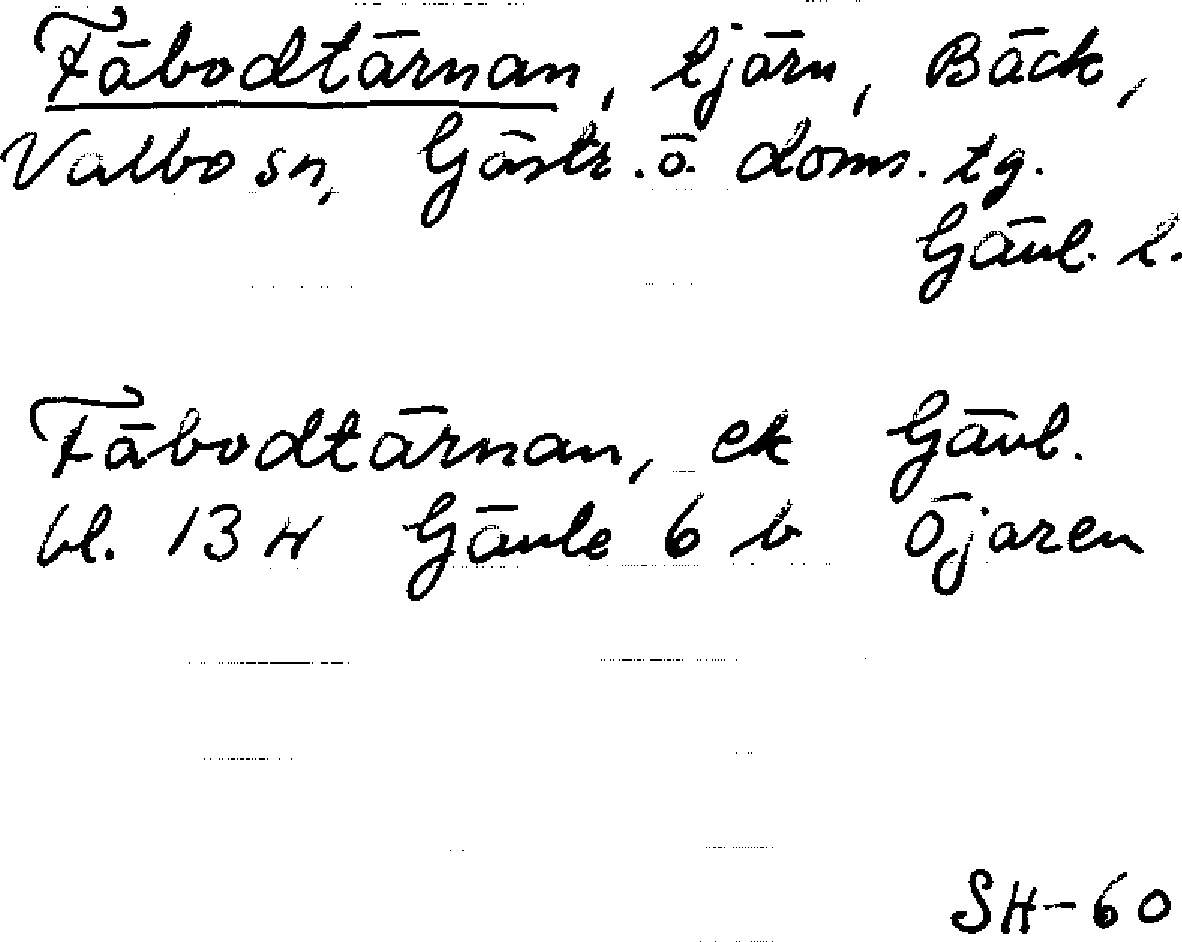 Fäbodtärnan, tjärn, Bäck,
Valbo sn, Gästr. ö. doms. tg.
Gävl. l.
Fäbodtärnan, ek Gävl.
bl. 13 H Gävle 6 b Öjaren
SH-60